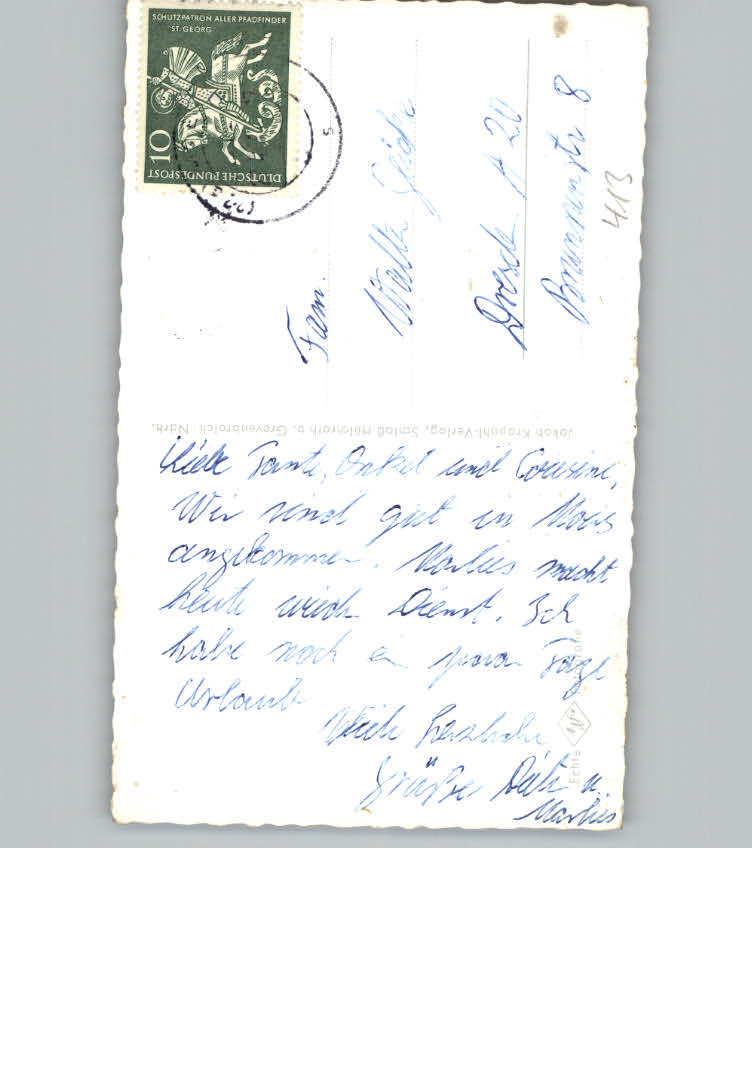 SCHUTZPATRON ALLER PFADFINDER
ST. GEORG
10
DEUTSCHE BUNDESPOST
Fam.
Walter
Dresden A 20
8
413
Jakob Krapohl-Verlag, Schloß Hülchrath b. Grevenbroich Ndrh.
Liebe Tante, Onkel und Cousine,
Wir sind gut in Moers
angekommen. Marlies macht
heute wieder Dienst. Ich
habe noch ein paar Tage
Urlaub
Viele herzliche
Grüße u.
Marlies
Echte